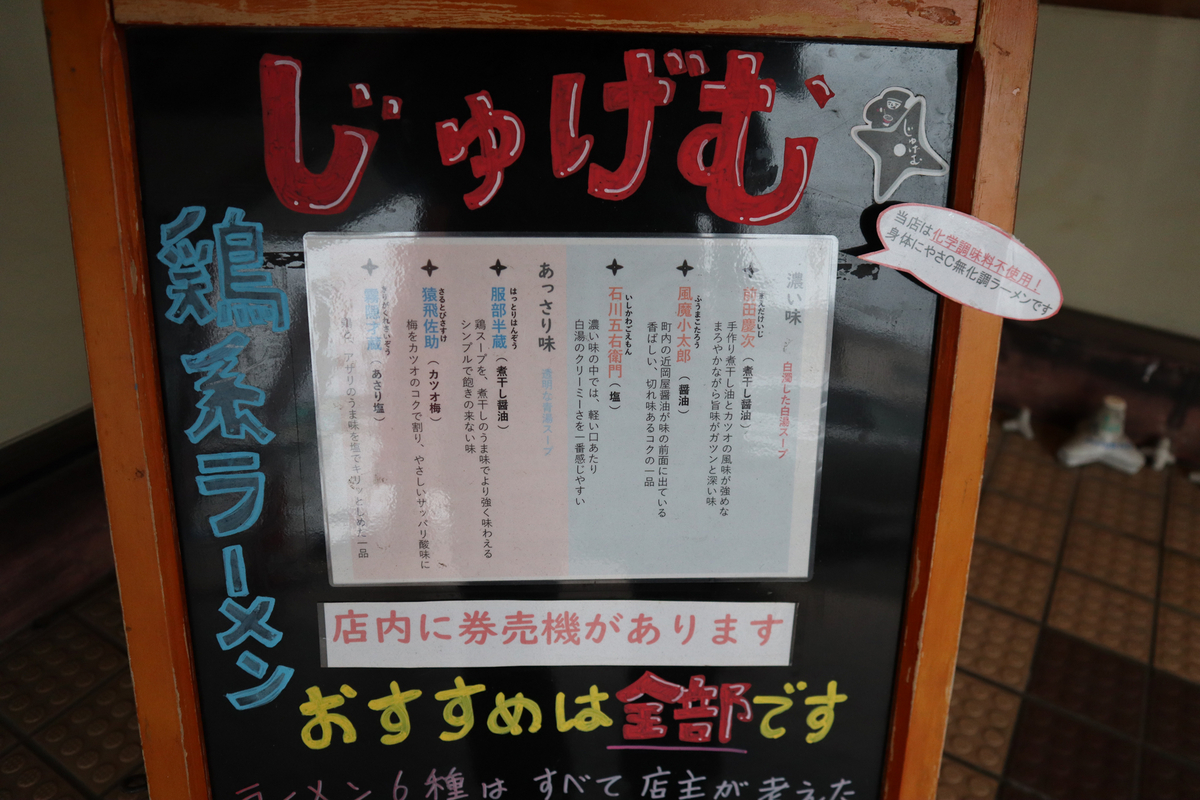 じゅげむ
じゅげむ
当店は化学調味料不使用！
身体にやさC無化調ラーメンです
鶏系ラーメン
濃い味
白濁した白湯スープ
前田慶次（煮干し醤油）
まえだけいじ
手作り煮干し油とカツオの風味が強めな
まろやかながら旨味がガツンと深い味
風魔小太郎（醤油）
ふうまこたろう
町内の近岡屋醤油が味の前面に出ている
香ばしい、切れ味あるコクの一品
石川五右衛門（塩）
いしかわごえもん
濃い味の中では、軽い口あたり
白湯のクリーミーさを一番感じやすい
あっさり味
透明な清湯スープ
服部半蔵（煮干し醤油）
はっとりはんぞう
鶏スープを、煮干しのうま味でより強く味わえる
シンプルで飽きの来ない味
猿飛佐助（カツオ梅）
さるとびさすけ
梅をカツオのコクで割り、やさしいサッパリ酸味に
霧隠才蔵（あさり塩）
きりがくれさいぞう
アサリのうま味を塩でキリッとしめた一品
店内に券売機があります
おすすめは全部です
ラーメン6種はすべて店主が考えた